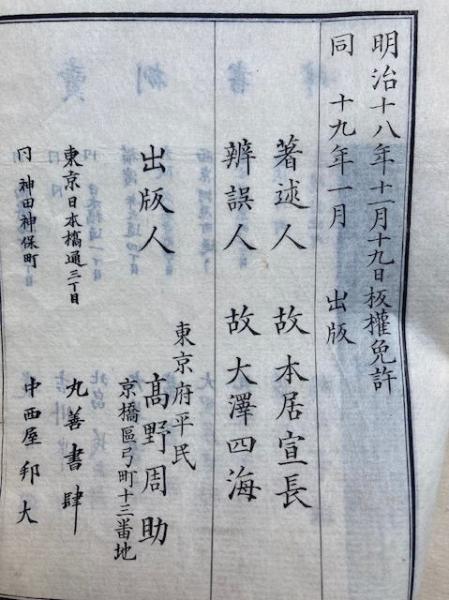 明治十八年十一月十九日板權免許
同 十九年一月 出版
著述人 故本居宣長
辨誤人 故大澤四海
東京府平民
出版人 髙野周助
京橋區弓町十三番地
東京日本橋通三丁目 丸善書肆
同 神田神保町 中西屋邦太